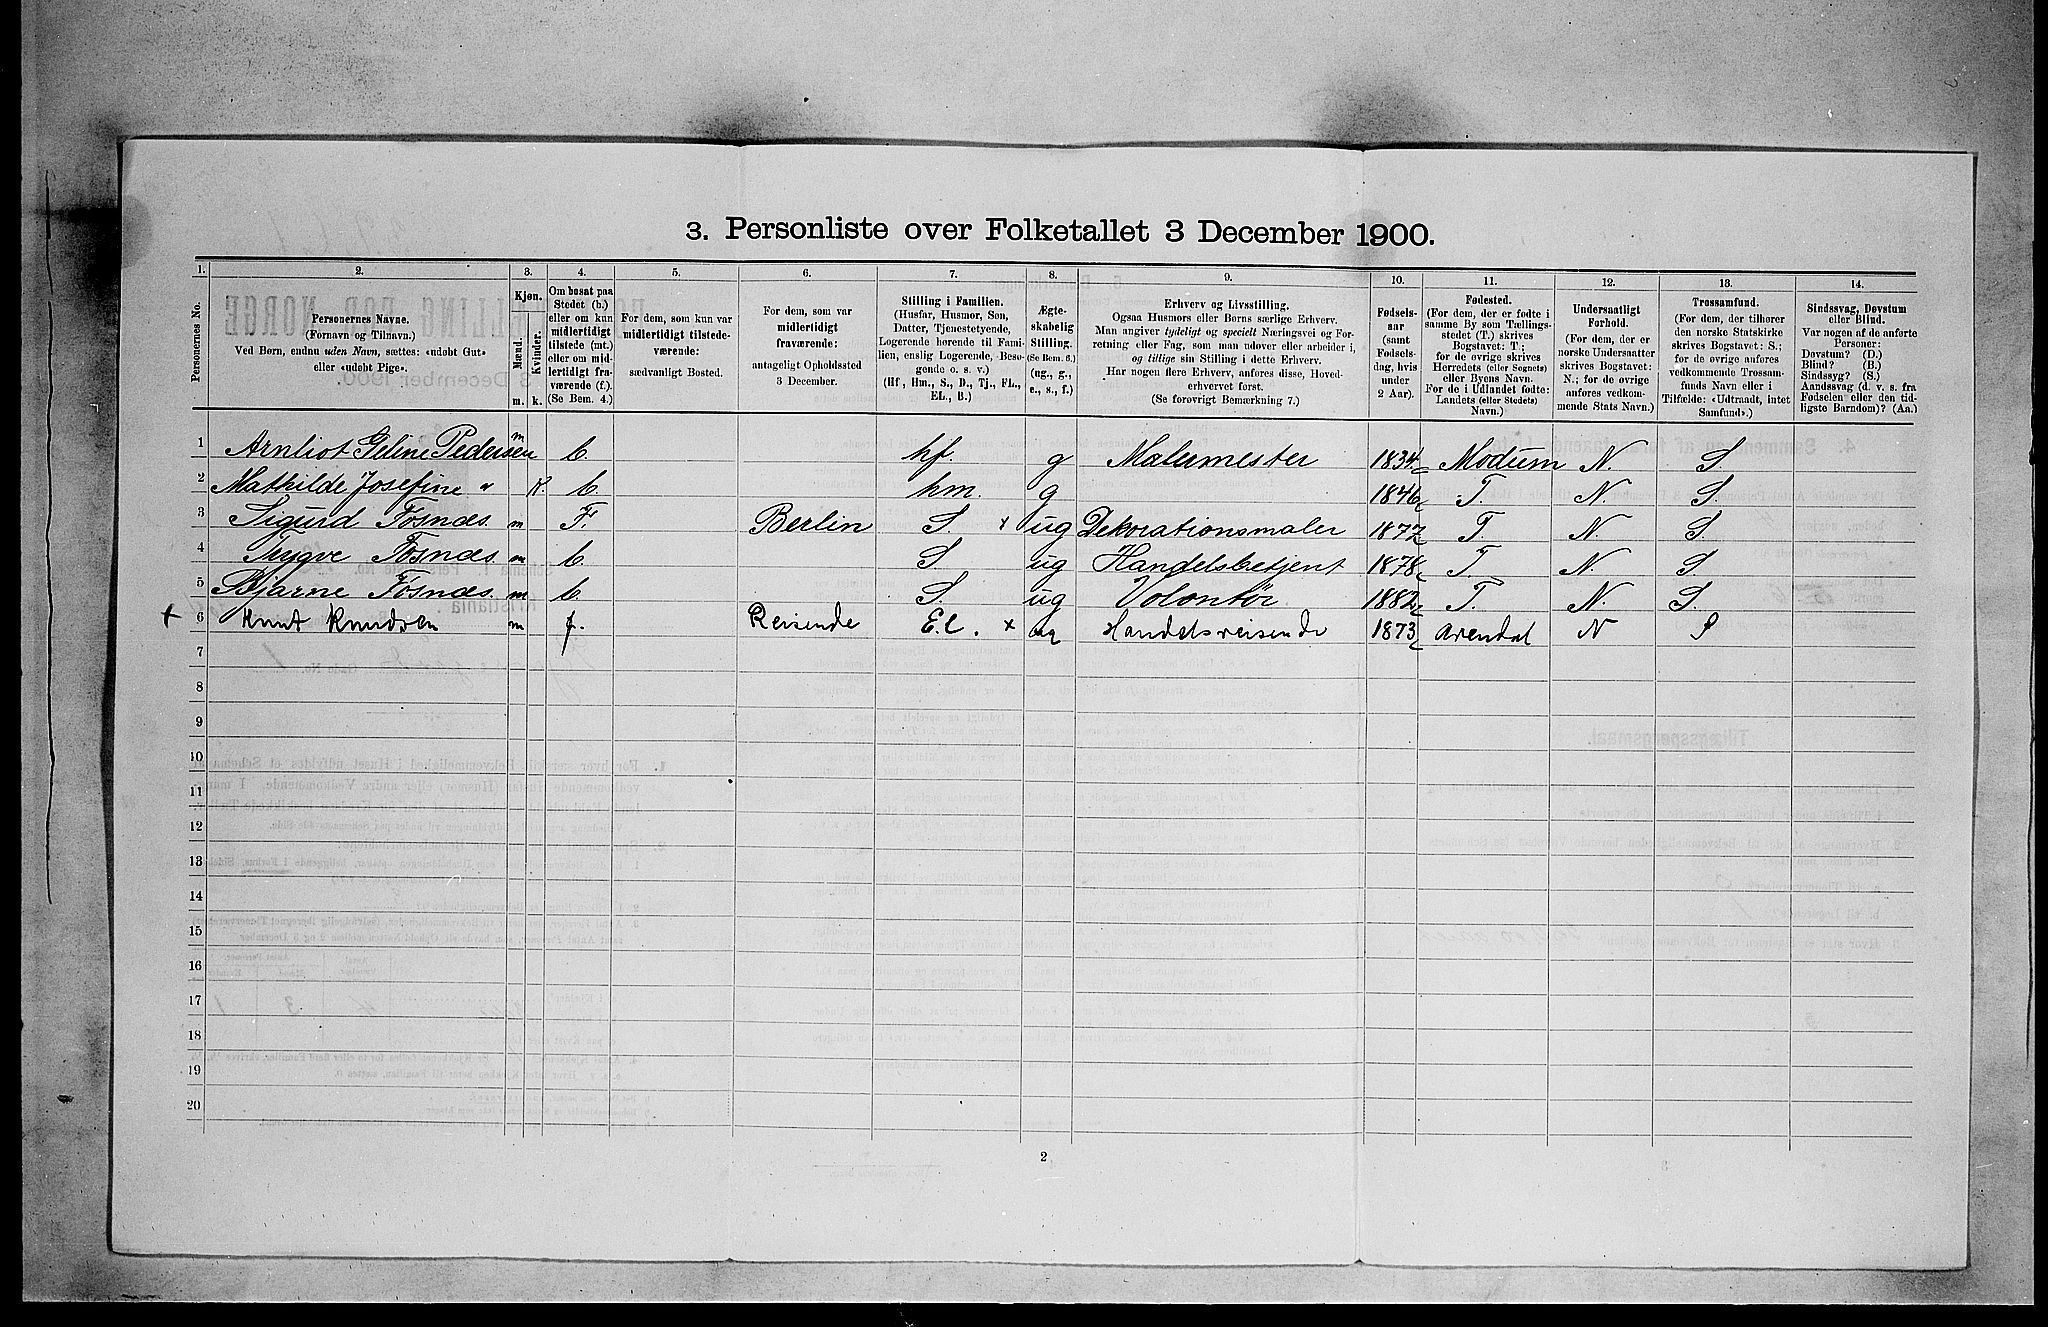 3. Personliste over Folketallet 3 December 1900.
1. 2. 3. 4. 5. 6. 7. 8. 9. 10. 11. 12. 13. 14.
Personernes No.
Personernes Navne.
(Fornavn og Tilnavn.)
Ved Børn, endnu uden Navn, sættes: «udøbt Gut»
eller «udøbt Pige».
Kjøn.
Mænd. Kvinder.
m. k.
Om bosat paa
Stedet (b.)
eller om kun
midlertidigt
tilstede (mt.)
eller om mid-
lertidigt fra-
værende (f.).
(Se Bem. 4.)
For dem, som kun var
midlertidigt tilstede-
værende:
sædvanligt Bosted.
For dem, som var
midlertidigt
fraværende:
antageligt Opholdssted
3 December.
Stilling i Familien.
(Husfar, Husmor, Søn,
Datter, Tjenestetyende,
Logerende hørende til Fami-
lien, enslig Logerende, Besø-
gende o. s. v.)
(Hf, Hm., S., D., Tj., FL.,
EL., B.)
Ægte-
skabelig
Stilling.
(Se Bem. 6.)
(ug., g.,
e., s., f.)
Erhverv og Livsstilling.
Ogsaa Husmors eller Børns særlige Erhverv.
Man angiver tydeligt og specielt Næringsvei og For-
retning eller Fag, som man udøver eller arbeider i,
og tillige sin Stilling i dette Erhverv.
Har nogen flere Erhverv, anføres disse, Hoved-
erhvervet først.
(Se forøvrigt Bemærkning 7.)
Fødsels-
aar
(samt
Fødsels-
dag, hvis
under
2 Aar).
Fødested.
(For dem, der er fødte i
samme By som Tællings-
stedet (T.) skrives
Bogstavet: T.;
for de øvrige skrives
Herredets (eller Sognets)
eller Byens Navn.
For de i Udlandet fødte:
Landets (eller Stedets)
Navn.)
Undersaatligt
Forhold.
(For dem, der er
norske Undersaatter
skrives Bogstavet:
N.; for de øvrige
anføres vedkom-
mende Stats Navn.)
Trossamfund.
(For dem, der tilhører
den norske Statskirke
skrives Bogstavet: S.;
for de øvrige anføres
vedkommende Trossam-
funds Navn eller i
Tilfælde: «Udtraadt, intet
Samfund».)
Sindssvag, Døvstum
eller Blind.
Var nogen af de anførte
Personer:
Døvstum? (D.)
Blind? (B.)
Sindssyg? (S.)
Aandssvag (d. v. s. fra
Fødselen eller den tid-
ligste Barndom)? (Aa.)
1 Arnliot Geline Pedersen m b. hf. g Malermester 1834 Modum N. S.
2 Mathilde Josefine " K. b. hm. g 1846 T. N. S.
3 Sigurd Fosnæs. m F. Berlin S. x ug Dekorationsmaler 1877 T. N. S.
4 Trygve Fosnæs. m b. S ug Handelsbetjent 1878 T. N. S
5 Bjarne Fosnæs. m b. S. ug Volontør 1882 T. N. S.
+ 6 Knut Knudsen m f. Reisende E.l. x ug Handelsreisende 1873 Arendal N S
7
8
9
10
11
12
13
14
15
16
17
18
19
20
2